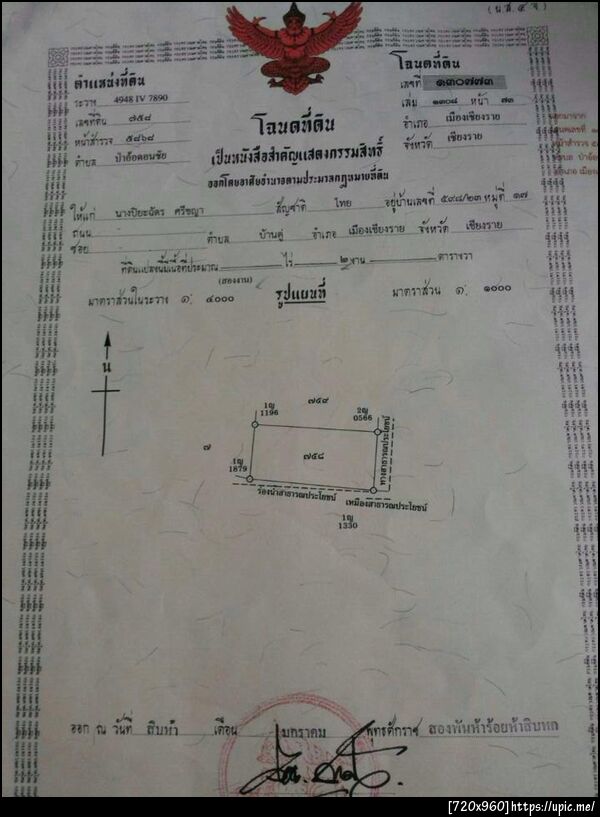 (น.ส. ๔ จ)
ตำแหน่งที่ดิน
ระวาง 4948 IV 7890
เลขที่ดิน ๗๕๘
หน้าสำรวจ ๕๘๖๘
ตำบล ป่าอ้อดอนชัย
โฉนดที่ดิน
เลขที่ ๑๓๐๗๗๓
เล่ม ๑๓๐๘ หน้า ๗๓
อำเภอ เมืองเชียงราย
จังหวัด เชียงราย
โฉนดที่ดิน
เป็นหนังสือสำคัญแสดงกรรมสิทธิ์
ออกโดยอาศัยอำนาจตามประมวลกฎหมายที่ดิน
ให้แก่ นางปิยะฉัตร ศรีชญา สัญชาติ ไทย อยู่บ้านเลขที่ ๕๙๘/๒๓ หมู่ที่ ๑๗
ถนน
ซอย ตำบล บ้านดู่ อำเภอ เมืองเชียงราย จังหวัด เชียงราย
ที่ดินแปลงนี้มีเนื้อที่ประมาณ ไร่ ๒ งาน ตารางวา
(สองงาน)
มาตราส่วนในระวาง ๑: ๔๐๐๐ รูปแผนที่ มาตราส่วน ๑: ๑๐๐๐
น
๗๕๙
๑ญ
1196
๒ญ
0566
๗
๗๕๘
๑ญ
1879
ทางสาธารณประโยชน์
ร่องน้ำสาธารณประโยชน์ เหมืองสาธารณประโยชน์
๑ญ
1330
ออก ณ วันที่ สิบห้า เดือน มกราคม พุทธศักราช สองพันห้าร้อยห้าสิบหก
[720x960]https://upic.me/